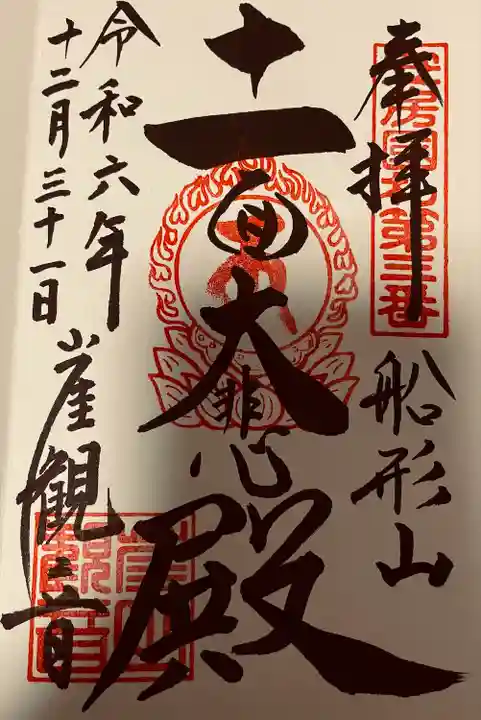 奉拝
船形山
十一面大悲殿
令和六年
十二月三十一日
崖観音
安房國札第三番